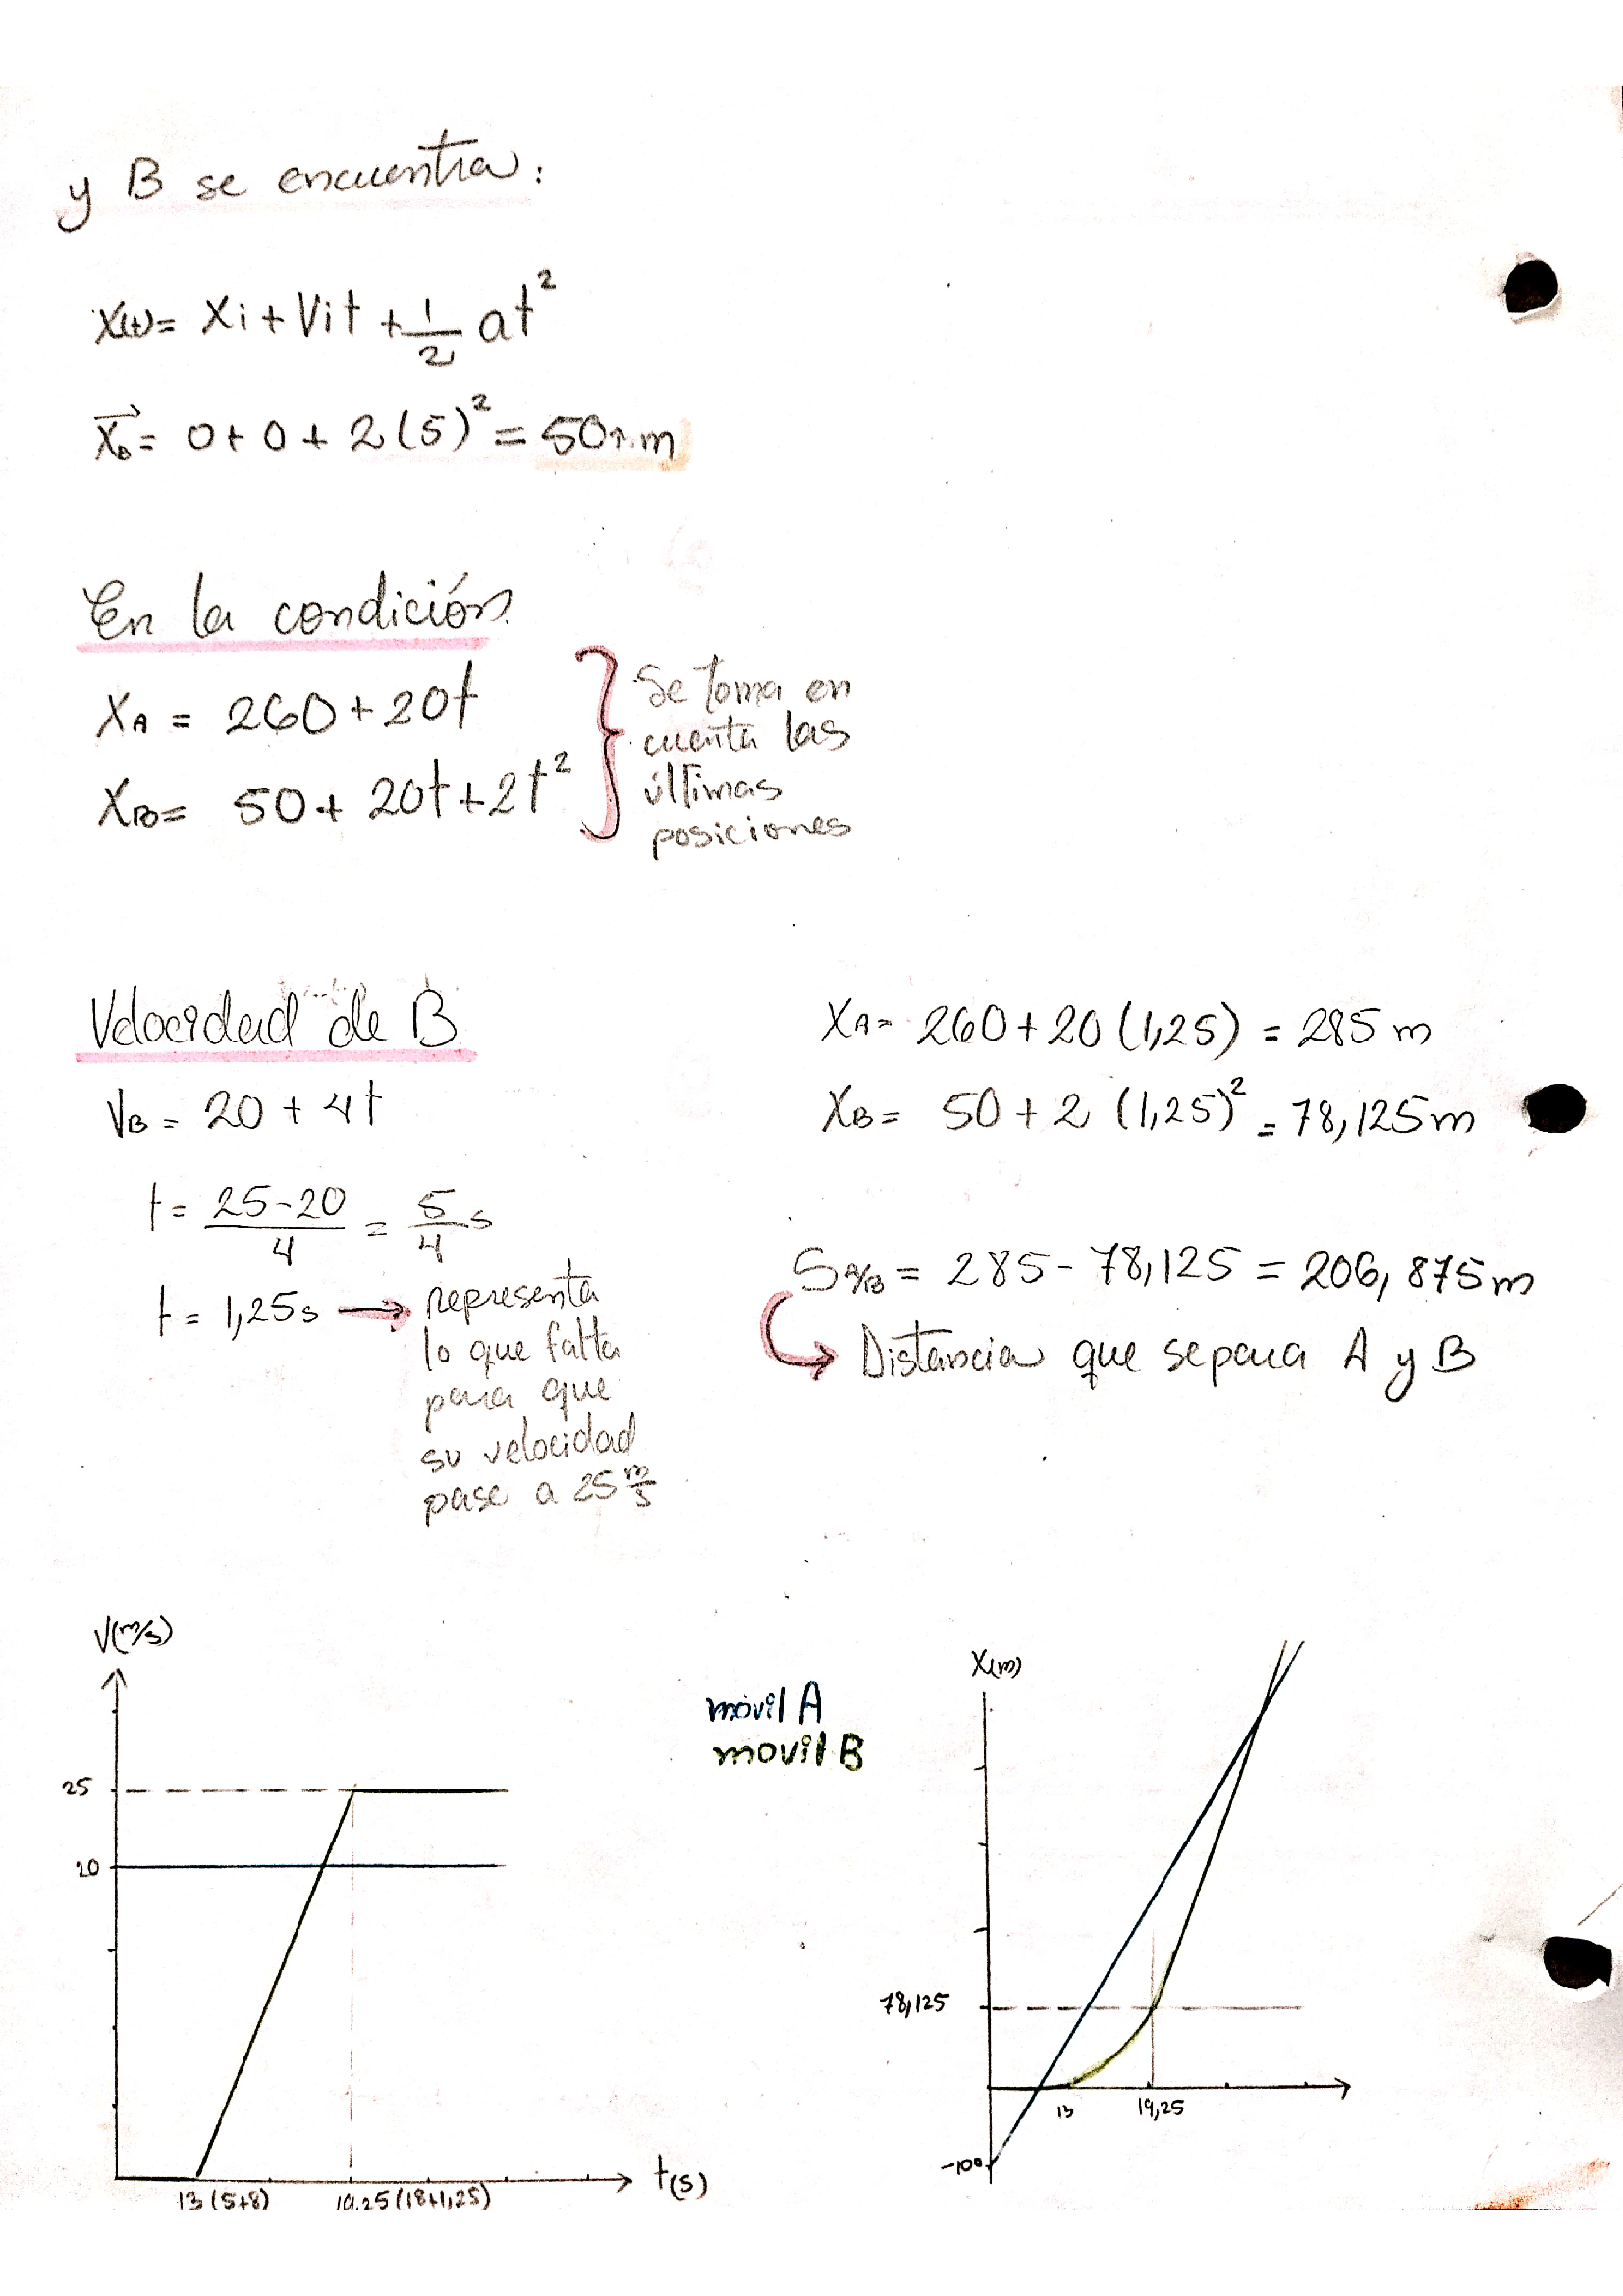 y B se encuentra:
X(t)= Xi + Vit + 1/2 at²
X⃗B= 0 + 0 + 2(5)² = 50 m
En la condición.
XA = 260 + 20t
XB= 50 + 20t + 2t²
Se toma en
cuenta las
últimas
posiciones
Velocidad de B
VB = 20 + 4t
t = 25-20/4 = 5/4 s
t = 1,25s → representa
lo que falta
para que
su velocidad
pase a 25 m/s
XA= 260 + 20 (1,25) = 285 m
XB= 50 + 2 (1,25)² = 78,125m
SA/B = 285 - 78,125 = 206,875m
Distancia que separa A y B
V(m/s)
25
20
13 (5+8)
19.25 (18+1,25)
t(s)
móvil A
movil B
X(m)
78,125
13
19,25
-100